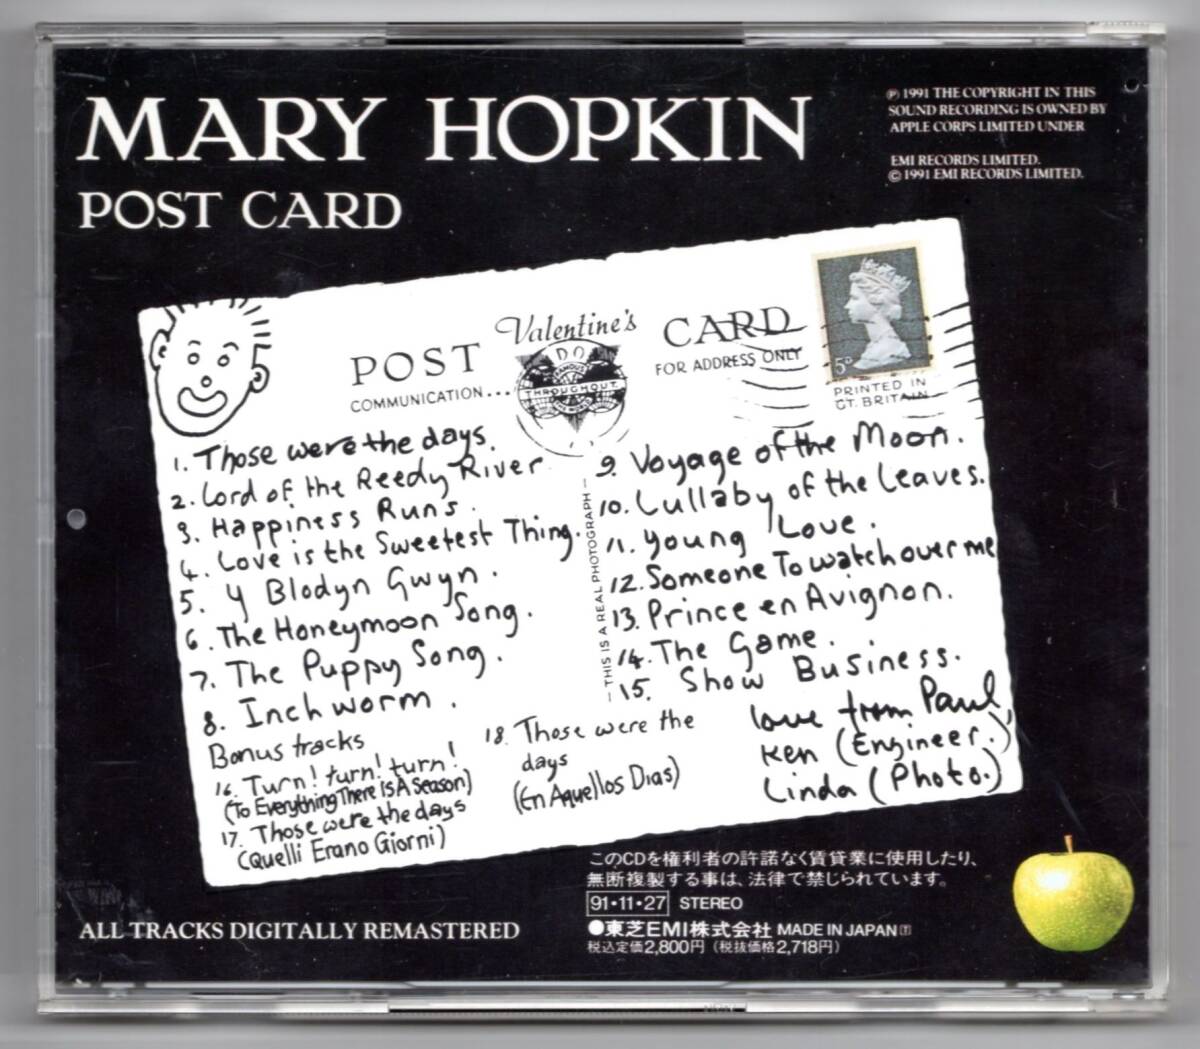 MARY HOPKIN
POST CARD
Ⓟ 1991 THE COPYRIGHT IN THIS
SOUND RECORDING IS OWNED BY
APPLE CORPS LIMITED UNDER
EMI RECORDS LIMITED.
© 1991 EMI RECORDS LIMITED.
POST
Valentine's
CARD
COMMUNICATION...
FOR ADDRESS ONLY
FAMOUS
THROUGHOUT
5D
PRINTED IN
GT. BRITAIN
1. Those were the days.
2. Lord of the Reedy River
3. Happiness Runs.
4. Love is the Sweetest Thing.
5. Y Blodyn Gwyn.
6. The Honeymoon Song.
7. The Puppy Song.
8. Inchworm.
Bonus tracks
16. Turn! turn! turn!
(To Everything There Is A Season)
17. Those were the days
(Quelli Erano Giorni)
18. Those were the
days
(En Aquellos Dias)
—THIS IS A REAL PHOTOGRAPH—
9. Voyage of the Moon.
10. Lullaby of the Leaves.
11. Young Love.
12. Someone To watch over me
13. Prince en Avignon.
14. The Game.
15. Show Business.
love from Paul,
Ken (Engineer.)
Linda (Photo.)
このCDを権利者の許諾なく賃貸業に使用したり、
無断複製する事は、法律で禁じられています。
91・11・27 STEREO
●東芝EMI株式会社 MADE IN JAPAN Ⓣ
税込定価2,800円（税抜価格2,718円）
ALL TRACKS DIGITALLY REMASTERED